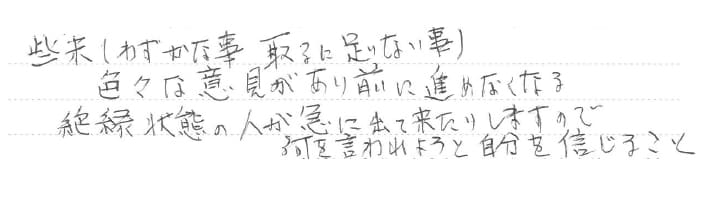 些末(わずかな事 取るに足りない事)
色々な意見があり前に進めなくなる
絶縁状態の人が急に出て来たりしますので
何を言われようと自分を信じること